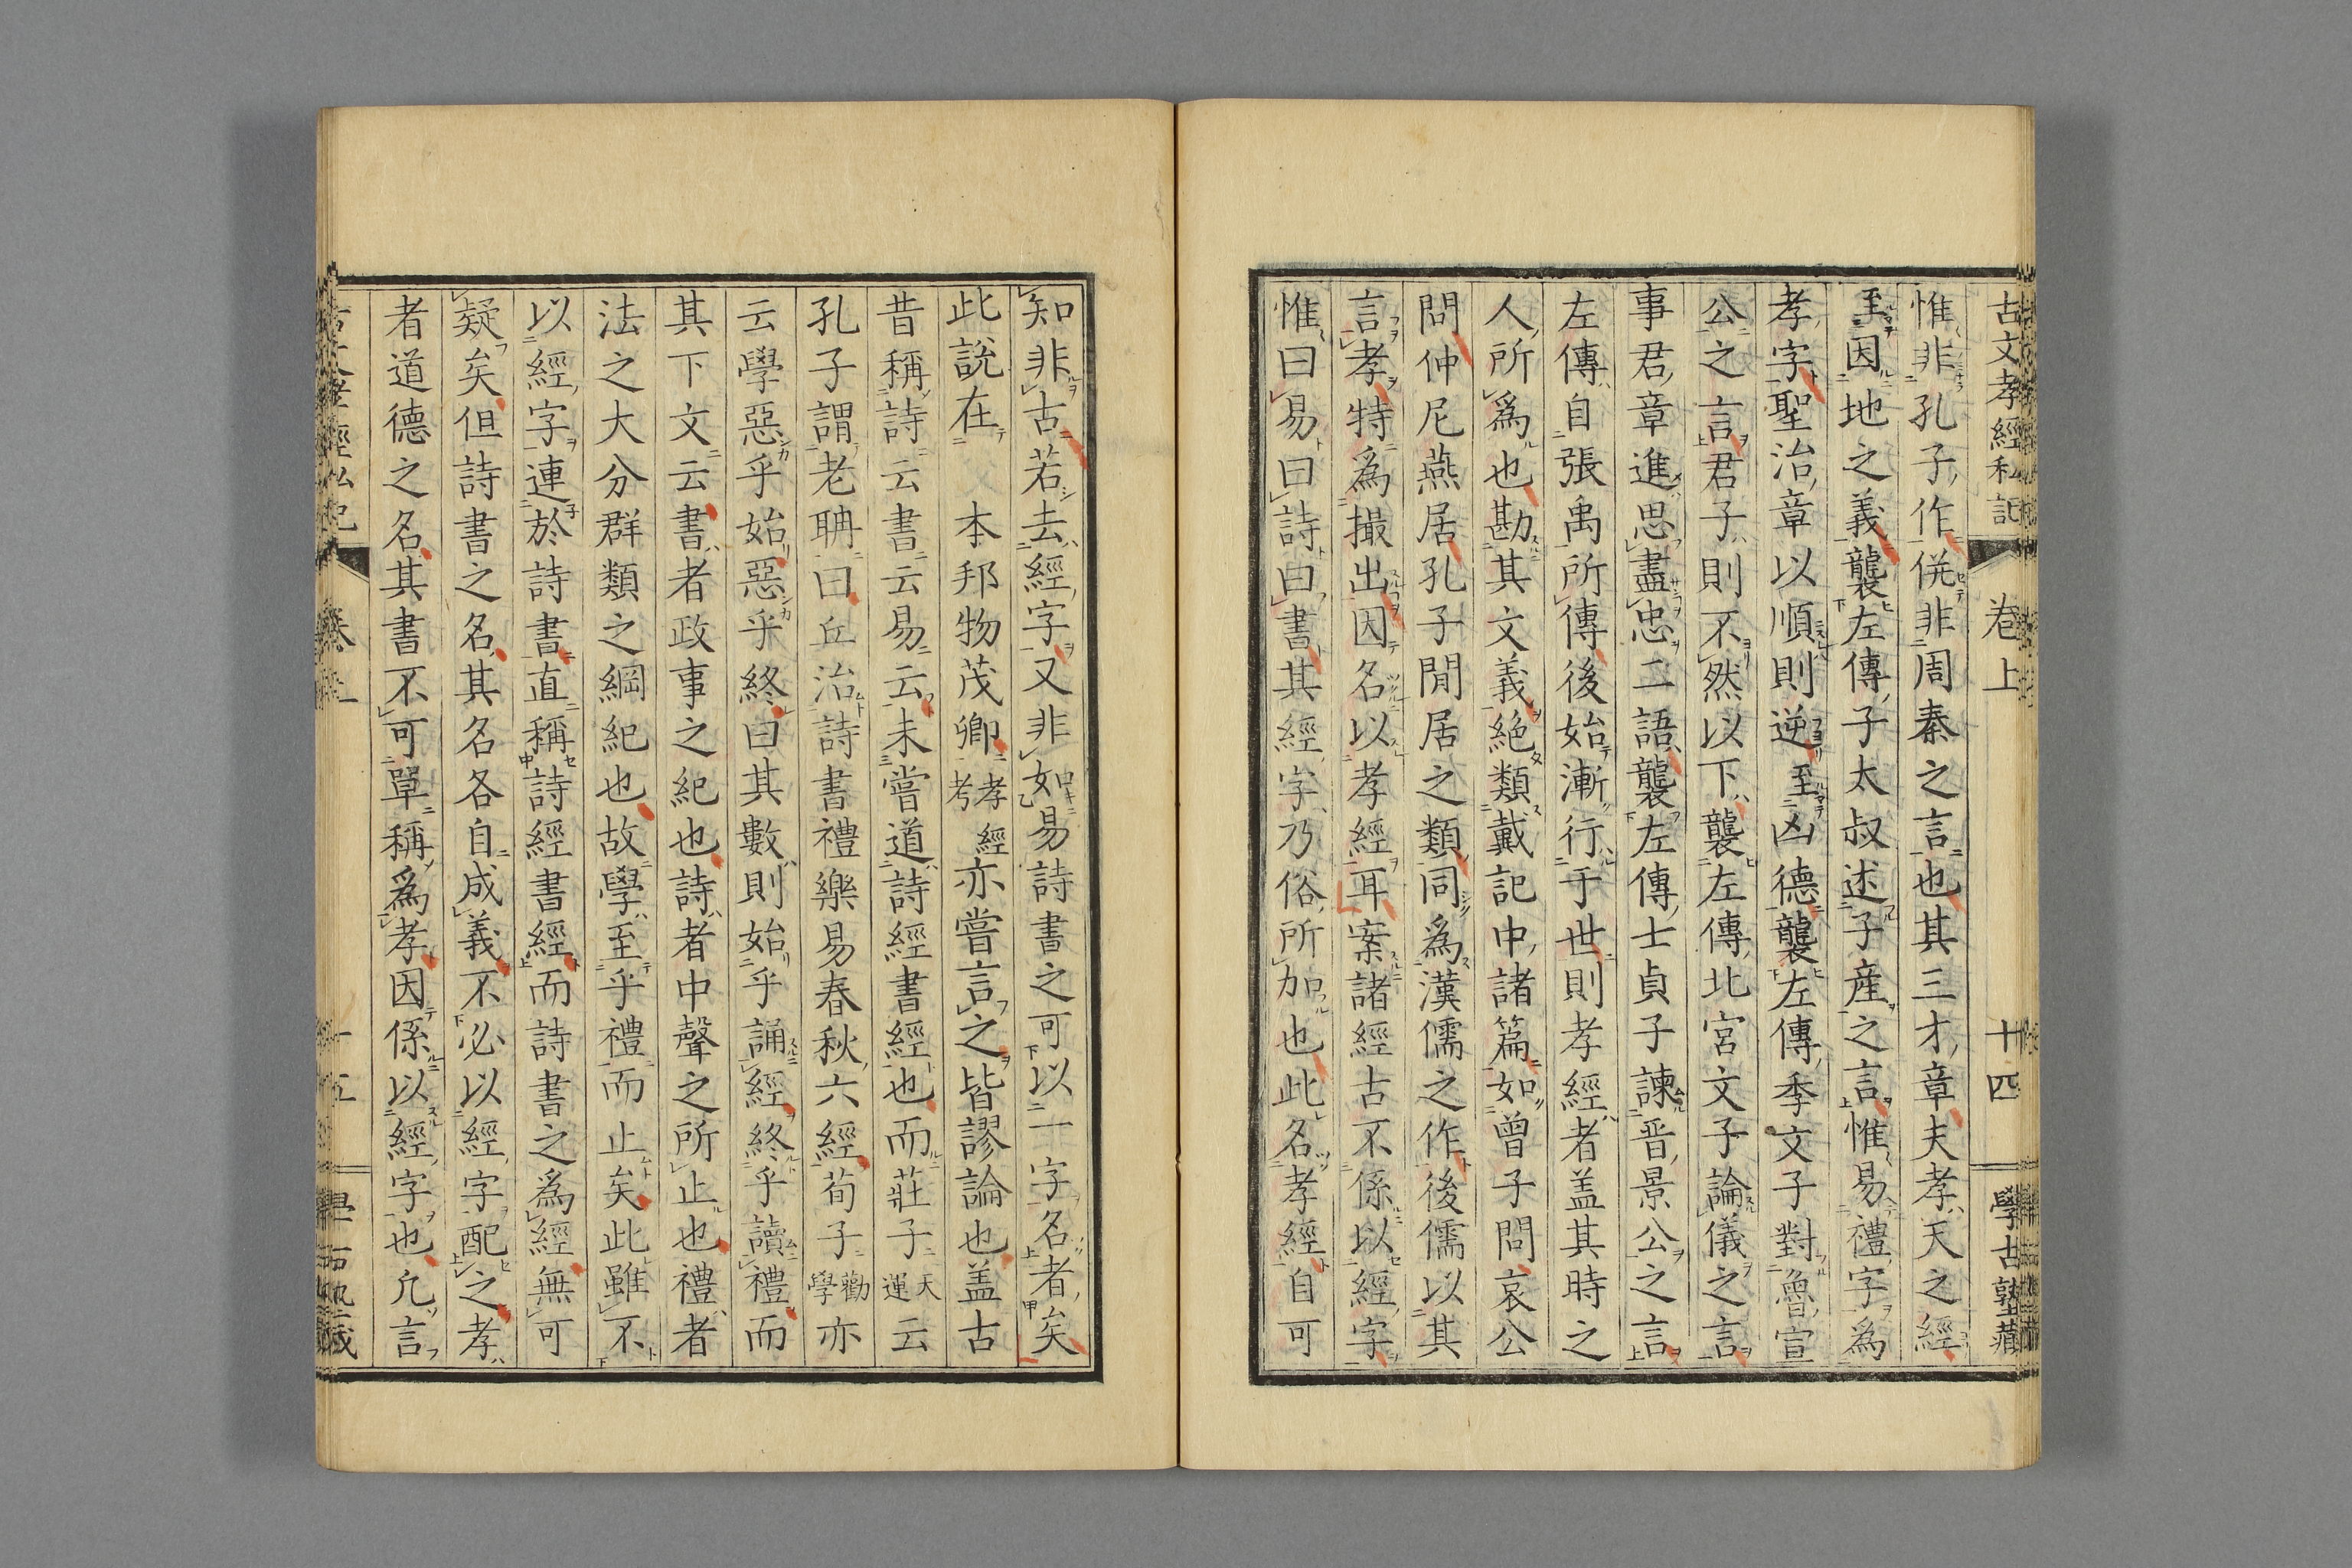 古文孝經私記 卷上 十四 學古塾藏
惟非孔子作併非周秦之言也其三才章夫孝天之經
至因地之義襲左傳子太叔述子産之言惟易禮字為
孝字聖治章以順則逆至凶德襲左傳季文子對魯宣
公之言君子則不然以下襲左傳北宮文子論儀之言
事君章進思盡忠二語襲左傳士貞子諫晋景公之言
左傳自張禹所傳後始漸行于世則孝經者盖其時之
人所為也勘其文義絶類戴記中諸篇如曾子問哀公
問仲尼燕居孔子閒居之類同為漢儒之作後儒以其
言孝特為撮出因名以孝經耳案諸經古不係以經字
惟曰易曰詩曰書其經字乃俗所加也此名孝經自可
知非古若去經字又非如易詩書之可以一字名者矣
此說在 本邦物茂卿孝經考亦嘗言之皆謬論也盖古
昔稱詩云書云易云未嘗道詩經書經也而莊子天運云
孔子謂老聃曰丘治詩書禮樂易春秋六經荀子勸學亦
云學惡乎始惡乎終曰其數則始乎誦經終乎讀禮而
其下文云書者政事之紀也詩者中聲之所止也禮者
法之大分群類之綱紀也故學至乎禮而止矣此雖不
以經字連於詩書直稱詩經書經而詩書之為經無可
疑矣但詩書之名其名各自成義不必以經字配之孝
者道德之名其書不可單稱為孝因係以經字也凢言